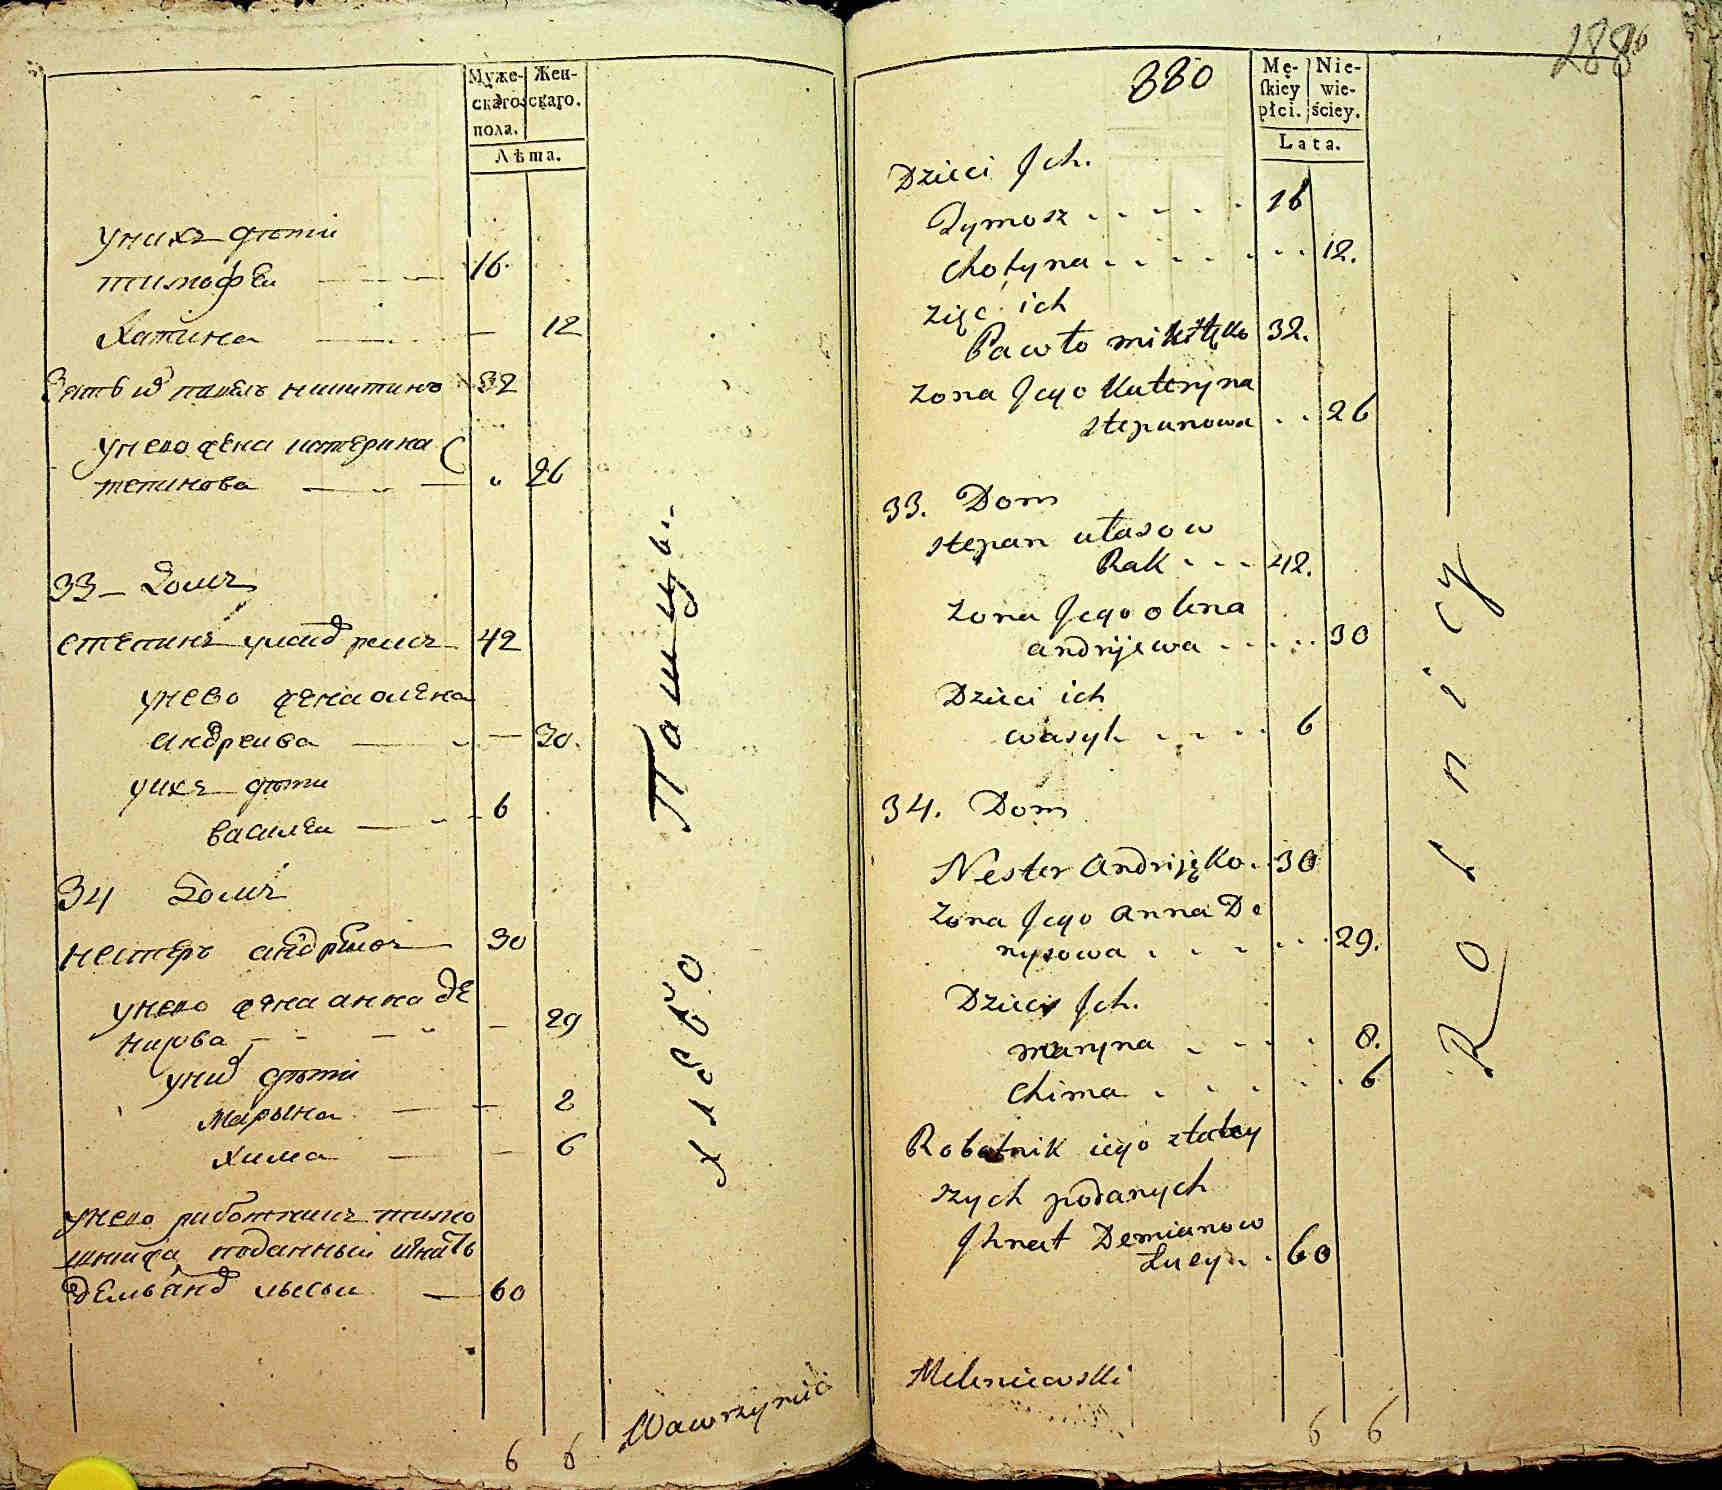 Муже-
скаго
пола.
Жен-
скаго.
Лѣта.
у них дѣти
тимофеи 16
Хатина 12
Зять их павелъ никитинъ 32
у нево жена катерина с
тепанова 26
33 Домъ
степанъ улас ракъ 42
у нево жена олена
андреива 30.
у них дѣти
василеи 6
34 Домъ
нестеръ андр 30
у нево жена анна де
нисова 29
у них дѣти
марына 8
хима 6
у нево работникъ
поданный игнатъ
демьян лысы 60
Пашущъ
хлѣбо
6 6
Wawrzyniec
288
380
Mę-
skiey
płci.
Nie-
wie-
ściey.
Lata.
Dzieci Jch.
Tymosz 16
Chotyna 12.
zięc ich
Pawło mikitęko 32.
zona Jego Kateryna
stepanowa 26
33. Dom
stepan ułasow
Rak 42.
zona Jego olena
andryjewa 30
Dzieci ich
wasyl 6
34. Dom
Nester Andrijęko 30
zona Jego anna De
nysowa 29.
Dzieci Jch.
maryna 8.
Chima 6
Robotnik iego z tutey
szych podanych
Jhnat Demianow
Łysy 60
Rolnicy
Meleniewski
6 6